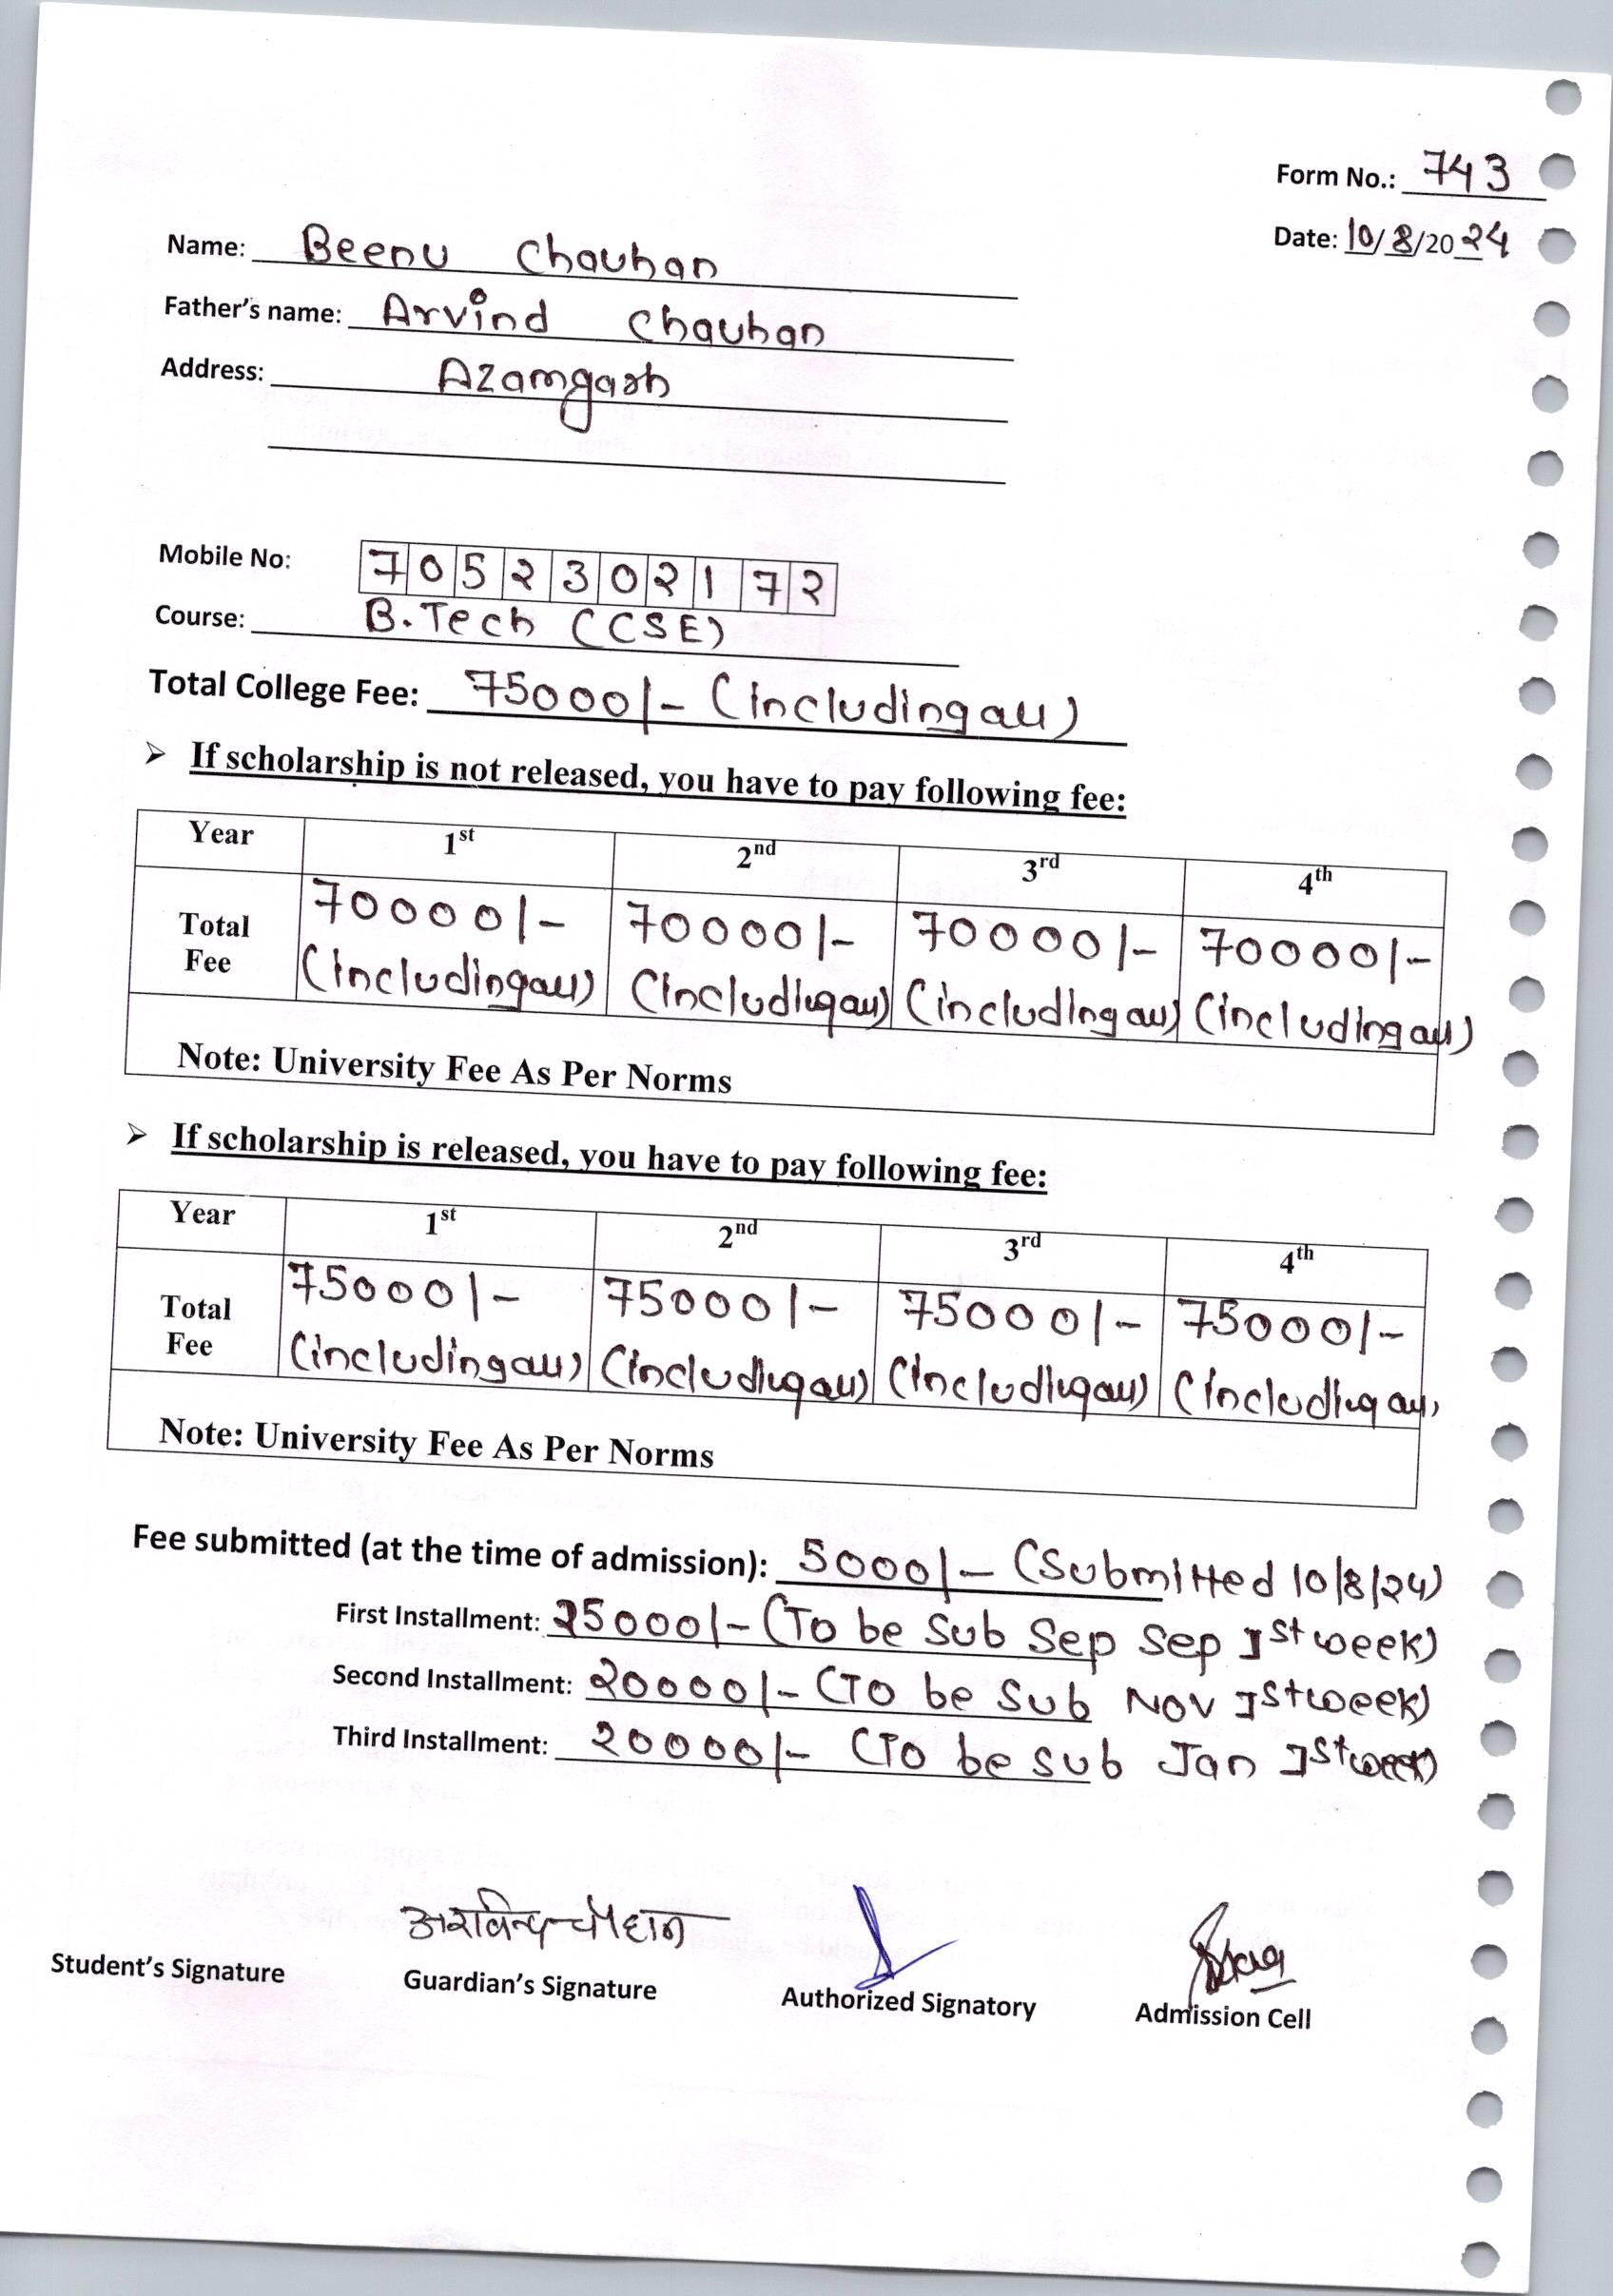 Form No.: 743
Date: 10/8/2024
Name: Beenu Chauhan
Father's name: Arvind Chauhan
Address: Azamgarh
Mobile No: 7052302172
Course: B.Tech (CSE)
Total College Fee: 75000/- (including all)
➢ If scholarship is not released, you have to pay following fee:
Year 1st 2nd 3rd 4th
Total Fee 70000/- 70000/- 70000/- 70000/-
(including all) (including all) (including all) (including all)
Note: University Fee As Per Norms
➢ If scholarship is released, you have to pay following fee:
Year 1st 2nd 3rd 4th
Total Fee 75000/- 75000/- 75000/- 75000/-
(including all) (including all) (including all) (including all)
Note: University Fee As Per Norms
Fee submitted (at the time of admission): 5000/- (Submitted 10/8/24)
First Installment: 25000/- (To be Sub Sep Sep 1st week)
Second Installment: 20000/- (To be Sub Nov 1st week)
Third Installment: 20000/- (To be sub Jan 1st week)
अरविन्द चौहान
Student's Signature Guardian's Signature Authorized Signatory Admission Cell